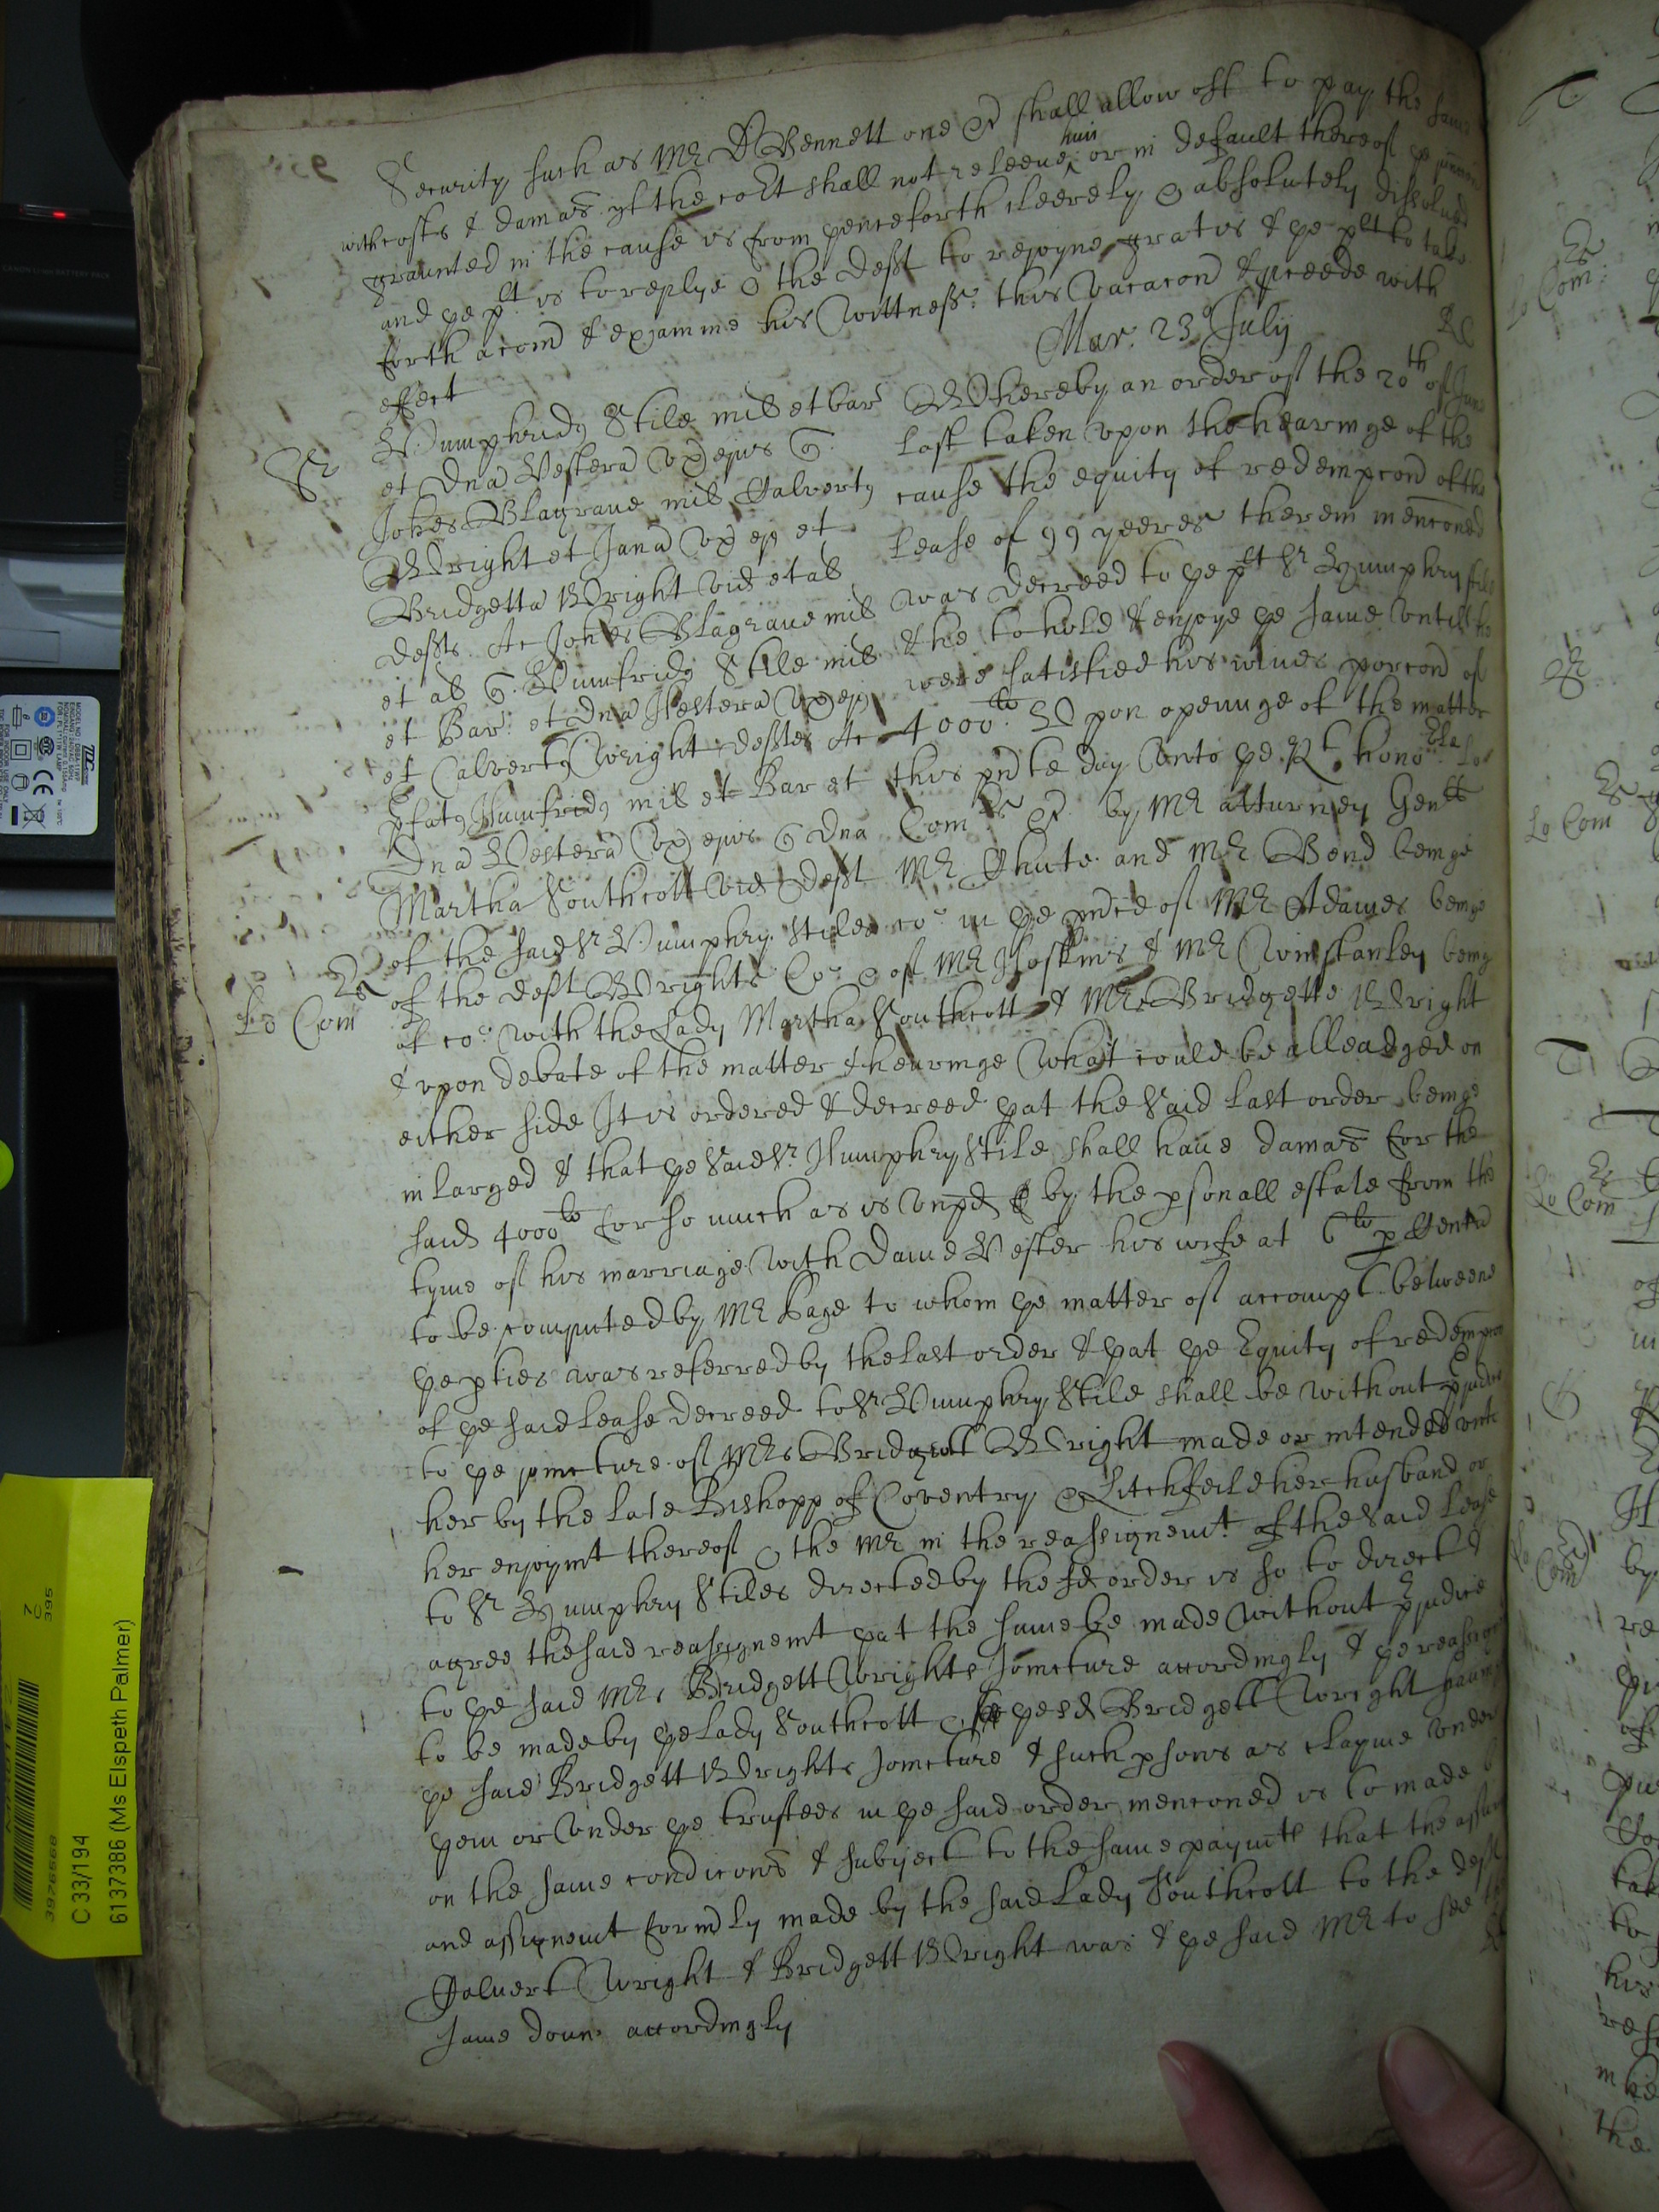 Security such as Mr D Bennett one &c shall allow off to pay the same
with costs & damas yf the cort shall not releeve him or in default thereof ye iniunc
graunted in the cause is from henceforth cleerely & absolutely dissolued
and ye plt is to replye & the deft to rejoyne gratis & ye plt to take
forth a comn & examine his wittness: this vacacon & pceede with
effect &c
Mar: 23o July
Humphridus Stile mil et bar Whereby an order of the 20th of June
et Dna Hestera ux eius Q. last taken upon the hearinge of the
Johes Blagrave mil Calvertus cause the equity of redempcon of the
Wright et Jana ux ejus et Lease of 99 yeeres therein mencioned
Bridgetta Wright vid et al was decreed to ye plt Sr Humphry Stile
defts. Ac Johes Blagrave mil & he to hold & enjoye ye same untill he
et al Q. Humfridus Stile mil were satisfied his wives porcon of
et Bar: et Dna Hestera ux ejus 4000li. Upon openinge of the matter
et Calvertus Wright defts Ac this pnte day unto ye Rt. hono:ble ye Lo:
pfatus Humfridus mil et Bar et Comrs &c by Mr atturney Genll
Dna Hestera ux ejus Q Dna Mr Chute and Mr Bond beinge
Martha Southcott vid deft
of the said Sr Humphry Stiles co: in ye pnce of Mr Adames beinge
of the deft Wrights Co: & of Mr Hoskins & Mr Winstanley being
of co: with the Lady Martha Southcott & Mrs Bridgette Wright
& upon debate of the matter & hearinge what could be alleadged on
either side It is ordered & decreed yat the said last order beinge
inlarged & that ye said Sr Humphry Stile shall have damas for the
said 4000li for so much as is unpd by the psonall estate from the
tyme of his marriage with Dame Hester his wife at 6li p Centu
to be computed by Mr Page to whom ye matter of accompt betweene
ye pties was referred by the last order & yat ye Equity of redempcon
of ye said Lease decreed to Sr Humphry Stile shall be without pjudice
to ye joincture of Mrs Bridgett Wright made or intended unto
her by the late Bishopp of Coventry & Litchfeild her husband or
her enjoymt thereof & the Mr in the reassignemt. of the said Lease
to Sr Humphry Stiles directed by the sd order is so to direct &
agree the said reassignemt yat the same be made without pjudice
to ye said Mrs Bridgett Wrights Joincture accordingly & ye reassignemt
to be made by ye Lady Southcott & ye sd Bridgett Wright saving
ye said Bridgett Wrights Joincture & such psons as clayme under
yem or under ye trustees in ye said order mencioned is to made
on the same condicons & subject to the same paymts that the assur
and assignemt formly made by the said Lady Southcott to the deft
Calvert Wright & Bridgett Wright was & ye said Mr to see the
same donn accordingly
Lo Com
Rs
C 33/194
6137386 (Ms Elspeth Palmer)